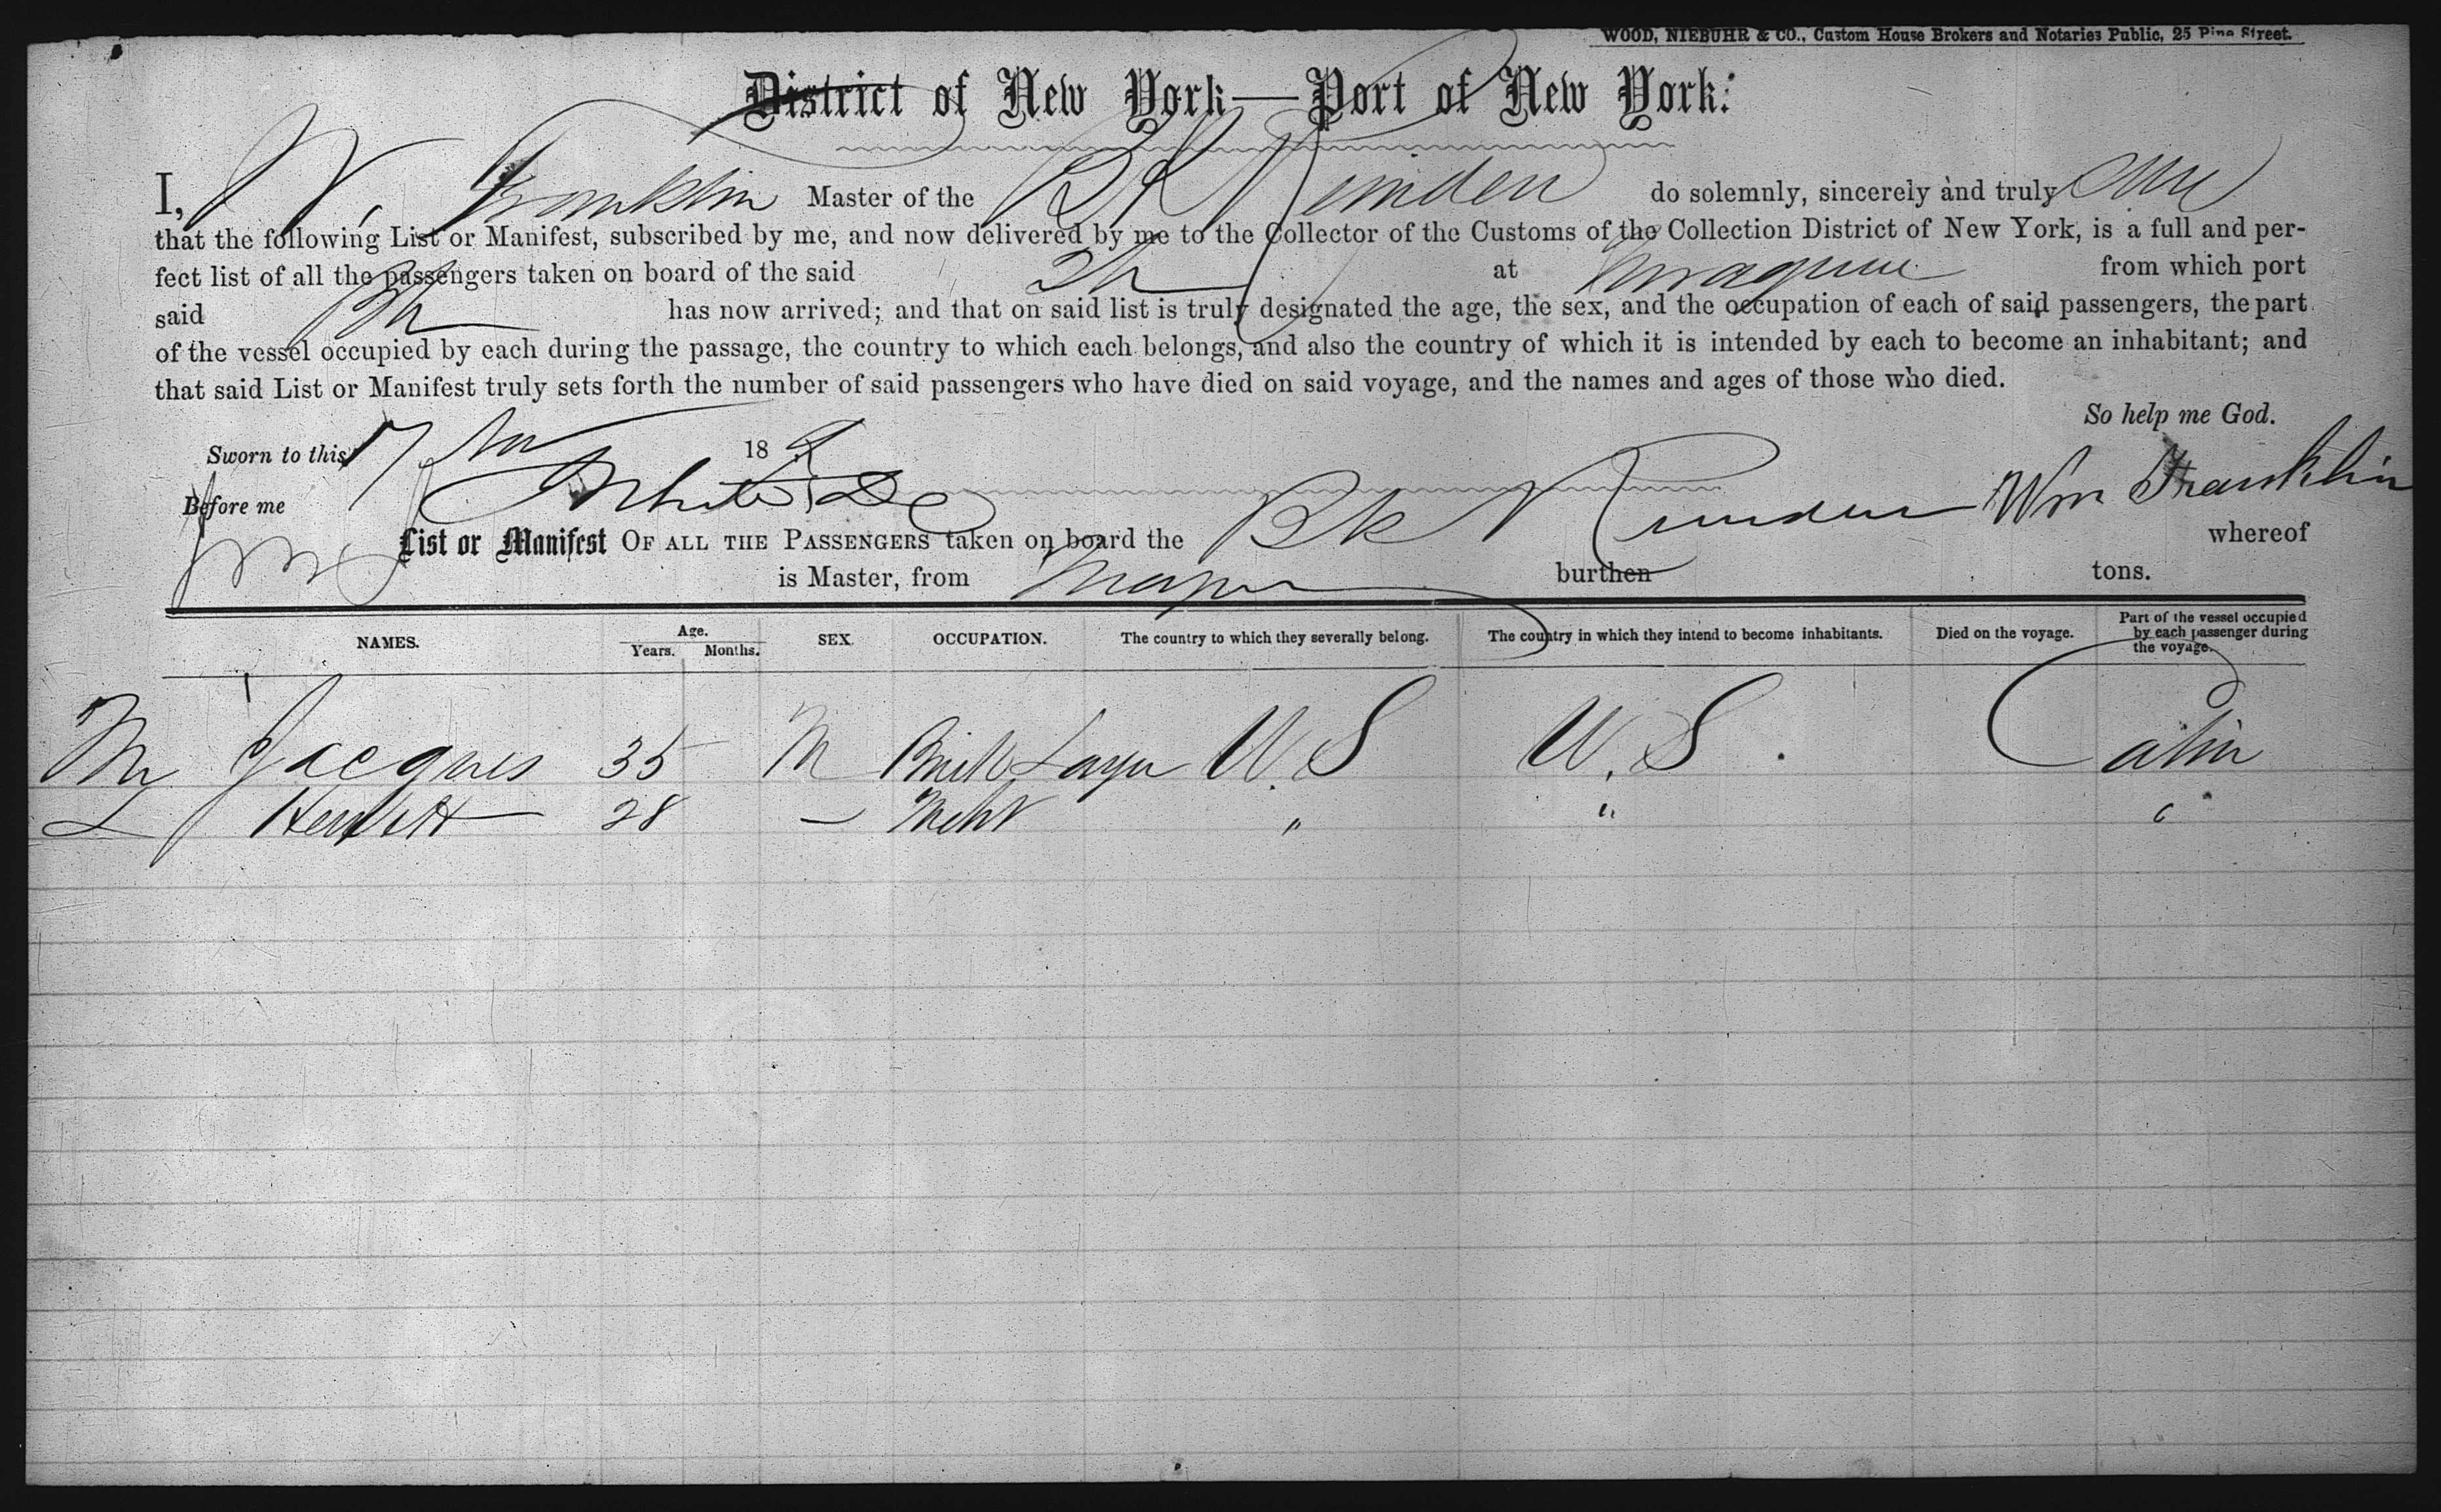 WOOD, NIEBUHR & CO., Custom House Brokers and Notaries Public, 25 Pine Street.
District of New York—Port of New York:
I, W. Franklin Master of the Bk do solemnly, sincerely and truly
that the following List or Manifest, subscribed by me, and now delivered by me to the Collector of the Customs of the Collection District of New York, is a full and per-
fect list of all the passengers taken on board of the said Bk at from which port
said Bk has now arrived; and that on said list is truly designated the age, the sex, and the occupation of each of said passengers, the part
of the vessel occupied by each during the passage, the country to which each belongs, and also the country of which it is intended by each to become an inhabitant; and
that said List or Manifest truly sets forth the number of said passengers who have died on said voyage, and the names and ages of those who died.
So help me God.
Sworn to this 17 Nov 18
Before me Wm Franklin
List or Manifest OF ALL THE PASSENGERS taken on board the Bk whereof
is Master, from burthen tons.
NAMES. Age. Years. Months. SEX. OCCUPATION. The country to which they severally belong. The country in which they intend to become inhabitants. Died on the voyage. Part of the vessel occupied by each passenger during the voyage.
Mr Jacques 35 M Brick Layer U.S U.S. Cabin
Hewlett 28 — Mcht " " "